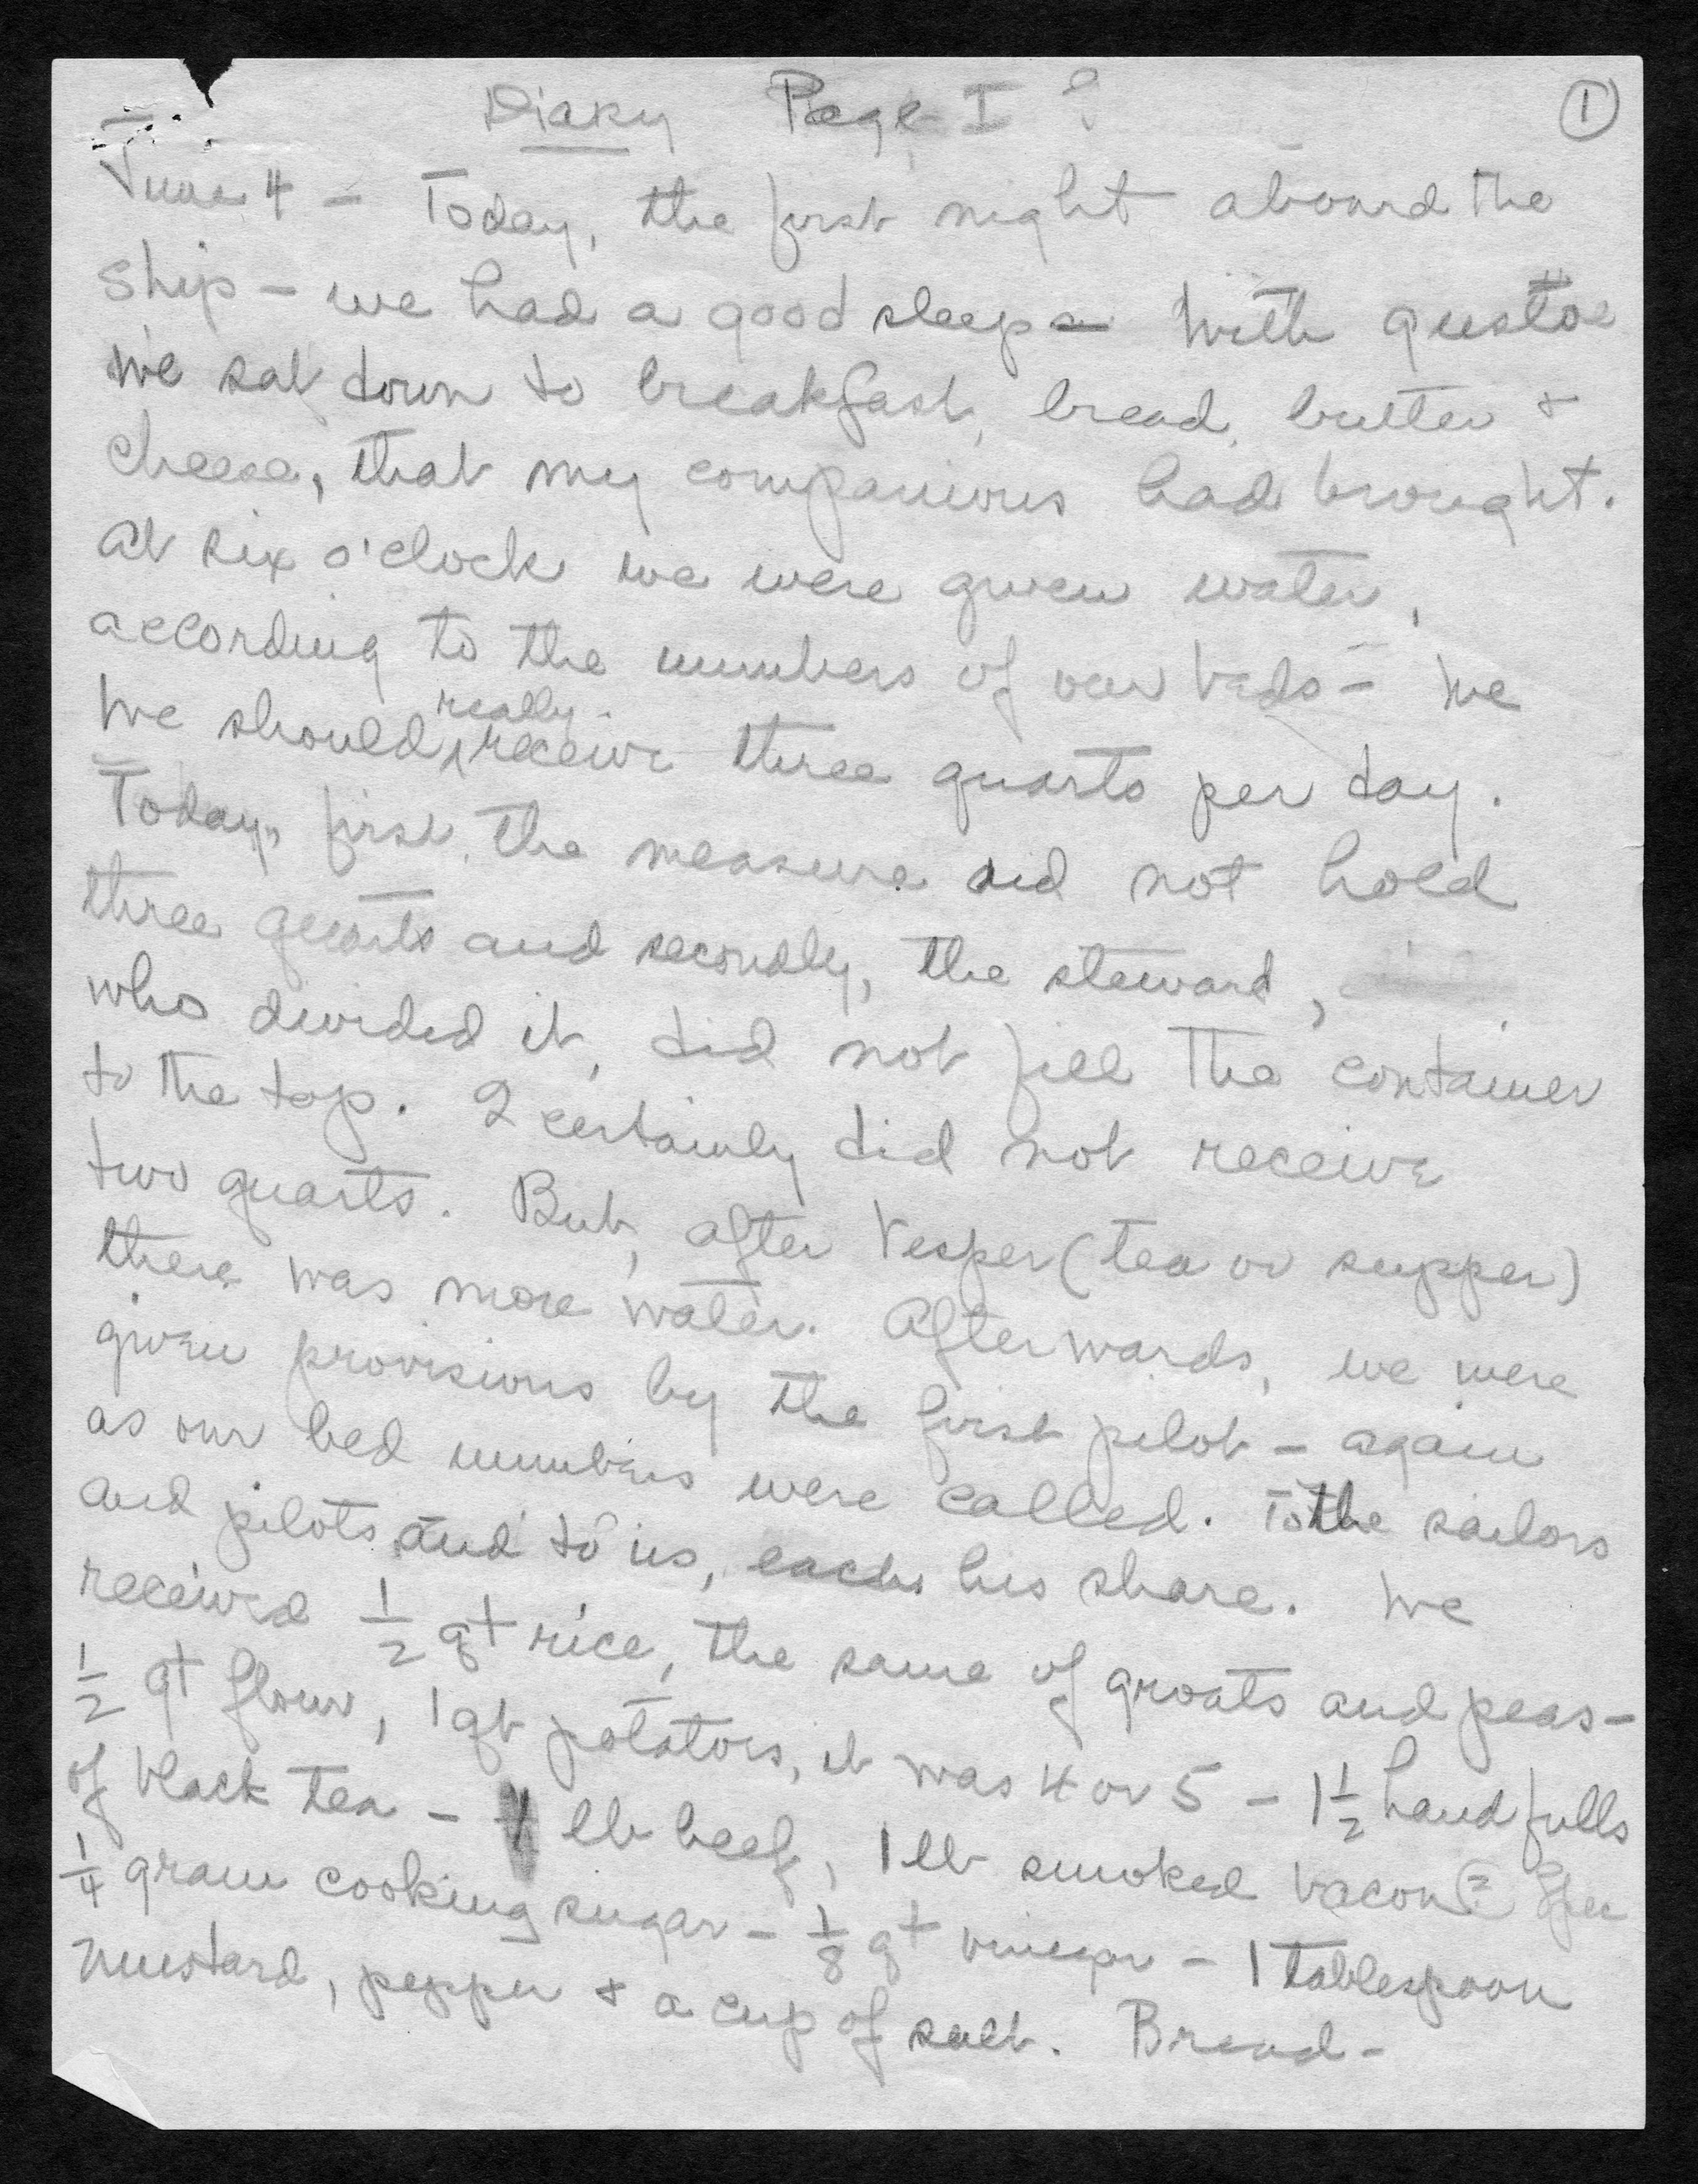 Diary Page I ?
①
June 4 – Today, the first night aboard the
ship – we had a good sleep – With gustoe
we sat down to breakfast, bread, butter &
cheese, that my companions had brought.
At six o'clock we were given water,
according to the numbers of our beds – We
We should really receive three quarts per day.
Today, first, the measure did not hold
three quarts and secondly, the steward,
who divided it, did not fill the container
to the top. I certainly did not receive
two quarts. But, after Vesper (tea or supper)
there was more water. Afterwards, we were
given provisions by the first pilot – again
as our bed numbers were called. To the sailors
and pilots and to us, each his share. We
received 1/2 qt rice, the same of groats and peas –
1/2 qt flour, 1 qt potatoes, it was 4 or 5 – 1 1/2 handfulls
of black tea – lb beef, 1 lb smoked bacon
1/4 gram cooking sugar – 1/8 qt vinegar – 1 tablespoon
mustard, pepper & a cup of salt. Bread –